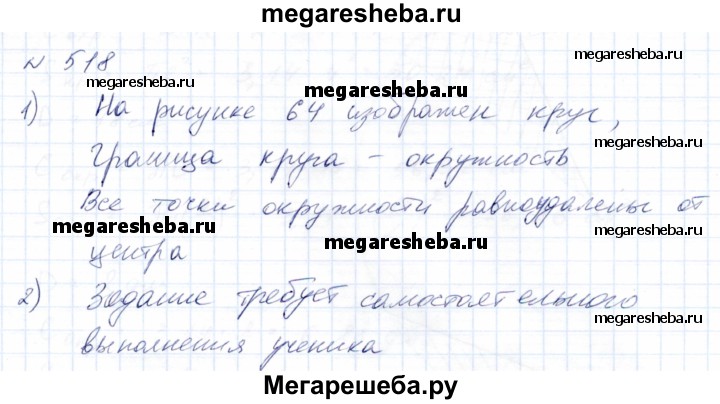 megaresheba.ru
№ 518
megaresheba.ru
megaresheba.ru
megaresheba.ru
1) На рисунке 64 изображен круг,
Граница круга - окружность
Все точки окружности равноудалены от
megaresheba.ru
центра
megaresheba.ru
2) Задание требует самостоятельного
megaresheba.ru
выполнения ученика
Мегарешеба.ру